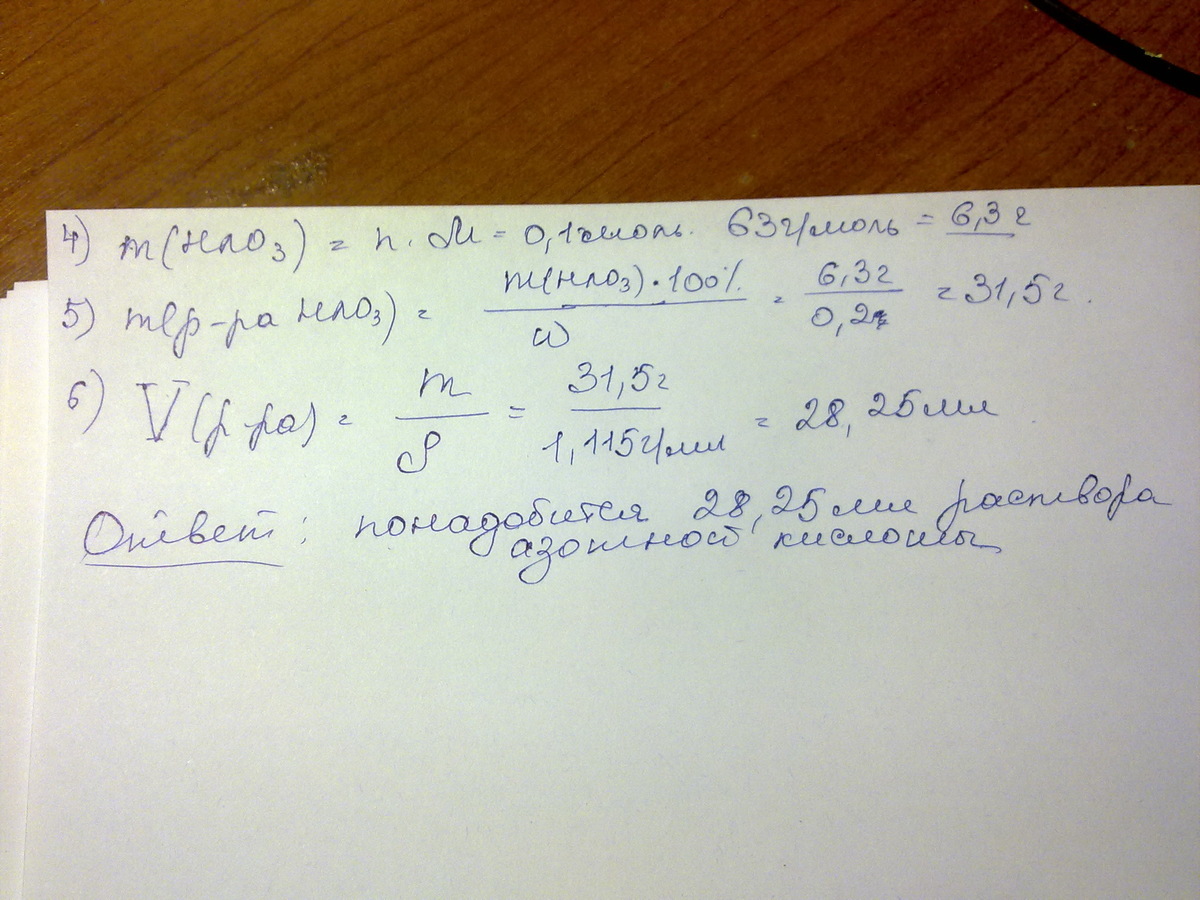 4) m(HNO₃) = n · M = 0,1 моль · 63 г/моль = 6,3 г
5) m(р-ра HNO₃) = m(HNO₃) · 100% / ω = 6,3 г / 0,2 = 31,5 г.
6) V(р-ра) = m / ρ = 31,5 г / 1,115 г/мл = 28,25 мл
Ответ: понадобится 28,25 мл раствора
азотной кислоты